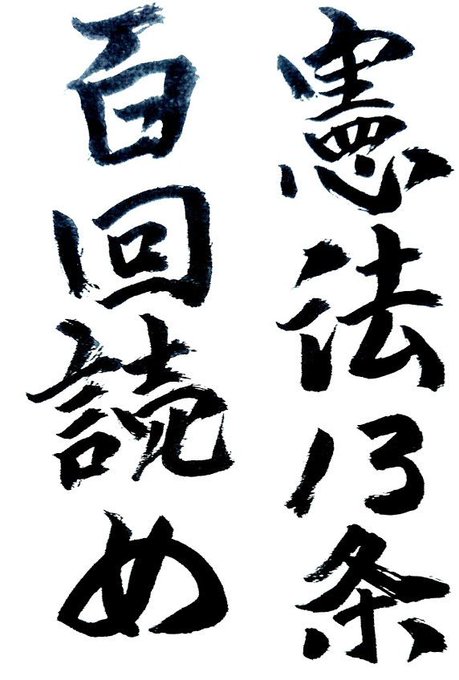 憲法13条
百回読め